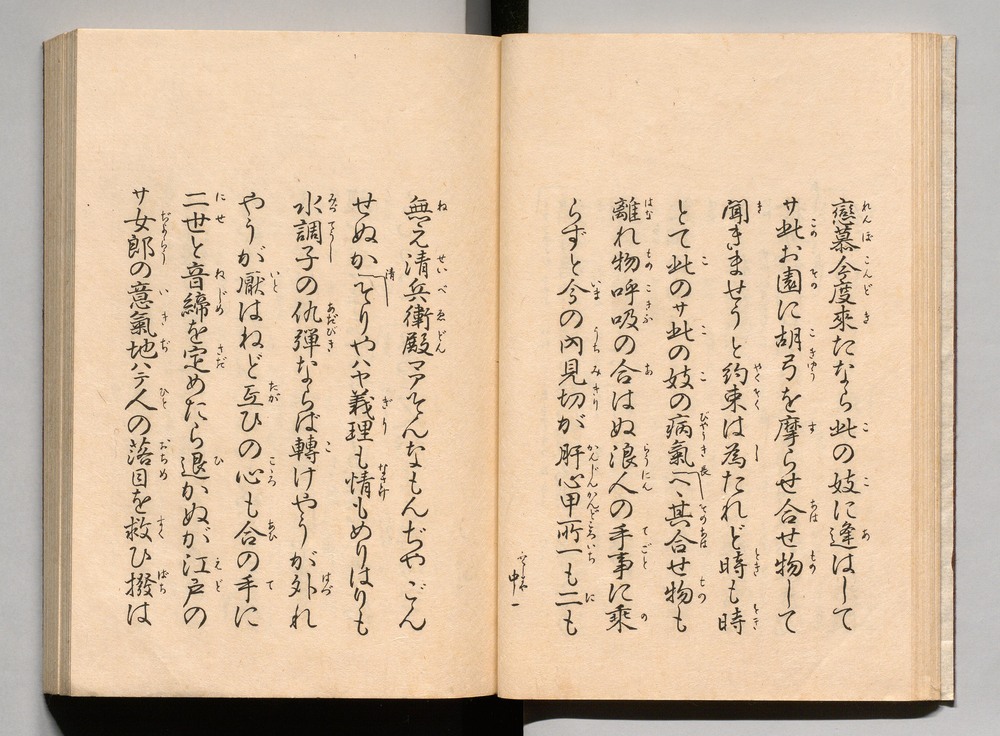 戀慕今度來たなら此の妓に逢はして
サ此お園に胡弓を摩らせ合せ物して
聞きませうと約束は為たれど時も時
とて此のサ此の妓の病氣へ、其合せ物も
離れ物呼吸の合はぬ浪人の手事に乘
らずと今の内見切が肝心甲所一も二も
中一
無え清兵衛殿マアそんなもんぢやごん
せぬかそりやハヤ義理も情もめりはりも
水調子の仇弾ならば轉けやうが外れ
やうが厭はねど互ひの心も合の手に
二世と音締を定めたら退かぬが江戸の
サ女郎の意氣地ハテ人の落目を救ひ撥は